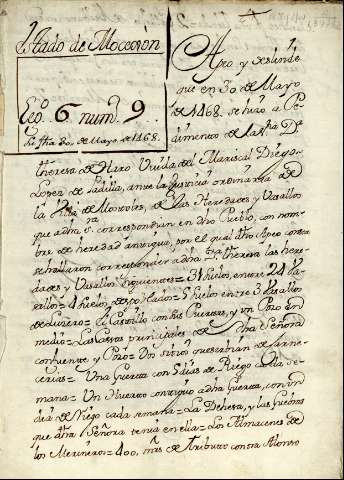 Estado de Mocorón
Leo. 6 num. 9
Su fha 30. de Mayo de 1468.
Apeo y deslinde
que en 30 de Mayo
de 1468. se hizo a Pe
dimento de la Sra Da
theresa de Haro Viuda del Mariscal Diego
Lopez de Padilla, ante la Justicia ordinaria de
la Villa de de las Heredades y Vasallos
que a dha Sa correspondian en dho Pueblo, con nom-
bre de heredad antigua, por el qual dho Apeo consta
se hallaron corresponder a dha Sra theresa las here
dades y Vasallos siguientes = 31 suelos, entre 24 Va-
sallos = 4 suelos despoblados = 5 suelos entre 3 Vasallos
de = el Castillo con sus Cuebas, y un Pozo en
medio = Las Casas principales de dha Señora
con fuente y Pozo = Un sitio que serbian de carne-
cerias = Una Guerta con 5 dias de Riego cada se-
mana = Un Huerto contiguo a dha Guerta, con un
dia de Riego cada semana = La Dehesa, y las
que dha Señora tenia en ella = Los Almacenes de
los = 400. mrs de tributo contra Alonso